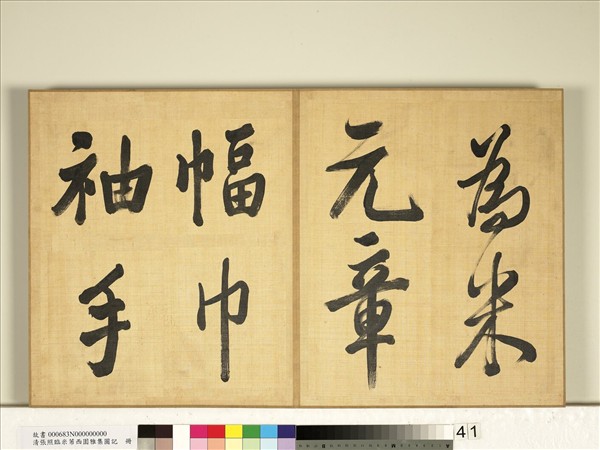 為米
元章
幅巾
袖手
故書 000683N000000000
清張照臨米芾西園雅集圖記 冊
41